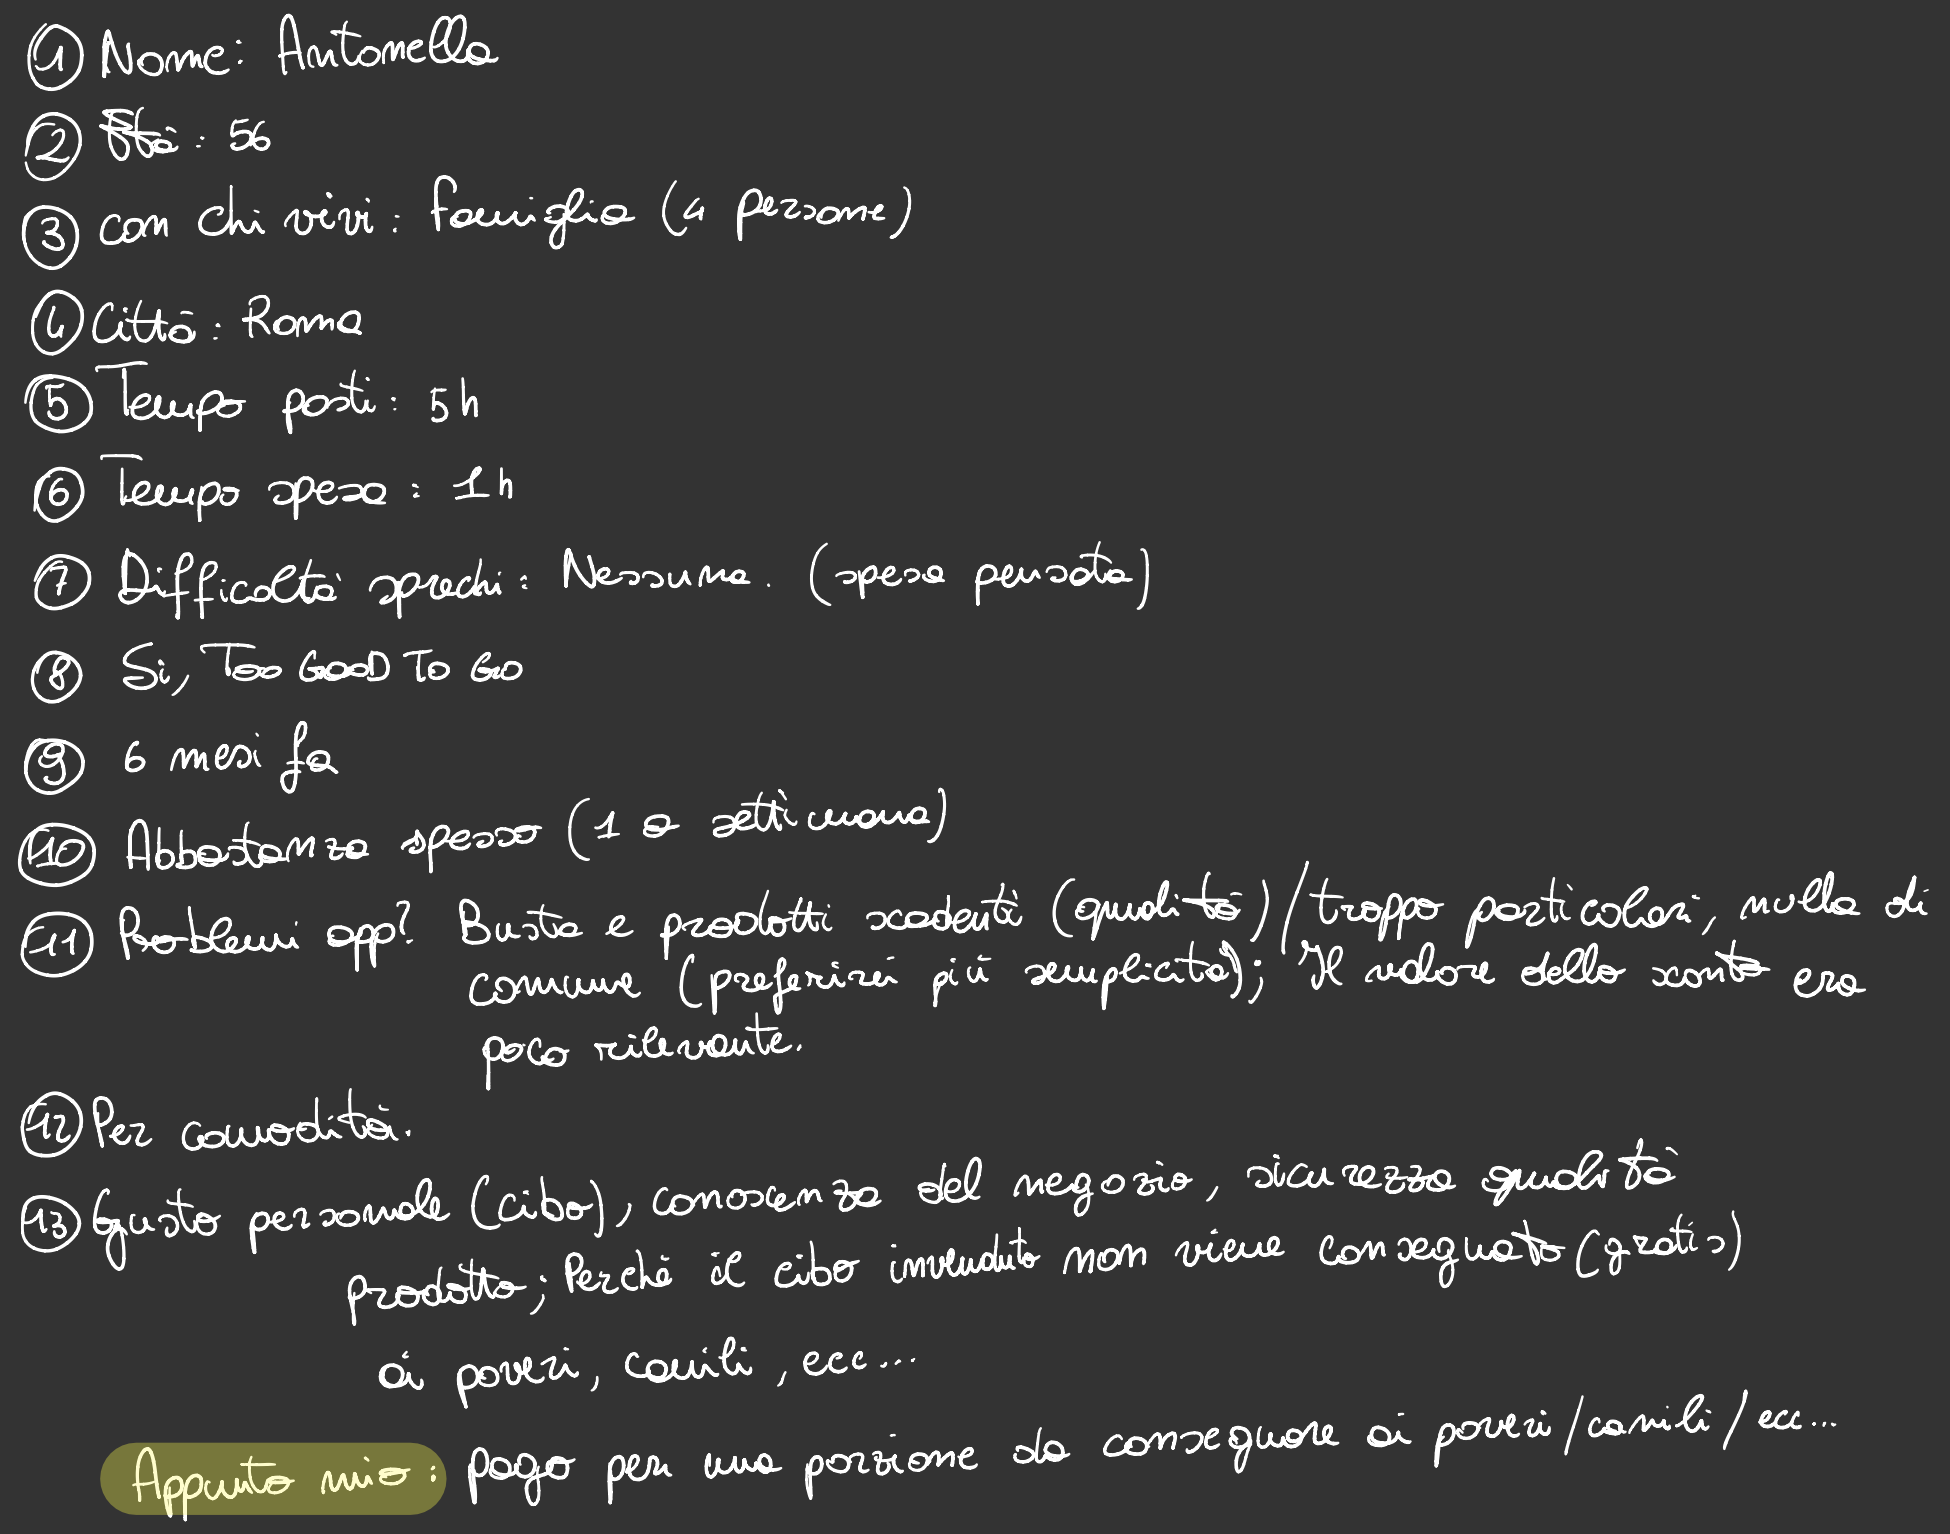 1 Nome: Antonella
2 Età: 56
3 con chi vivi: famiglia (4 persone)
4 Città: Roma
5 Tempo pasti: 5h
6 Tempo spesa: 1h
7 Difficoltà sprechi: Nessuna. (spesa pensata)
8 Si, TOO GOOD TO GO
9 6 mesi fa
10 Abbastanza spesso (1 a settimana)
11 Problemi app? Busta e prodotti scadenti (qualità)/troppo particolari, nulla di
comune (preferirei più semplicità); Il valore dello sconto era
poco rilevante.
12 Per comodità.
13 Gusto personale (cibo), conoscenza del negozio, sicurezza qualità
prodotto; Perché il cibo invenduto non viene consegnato (gratis)
ai poveri, canili, ecc...
Appunto mio: pago per una porzione da consegnare ai poveri/canili/ecc...